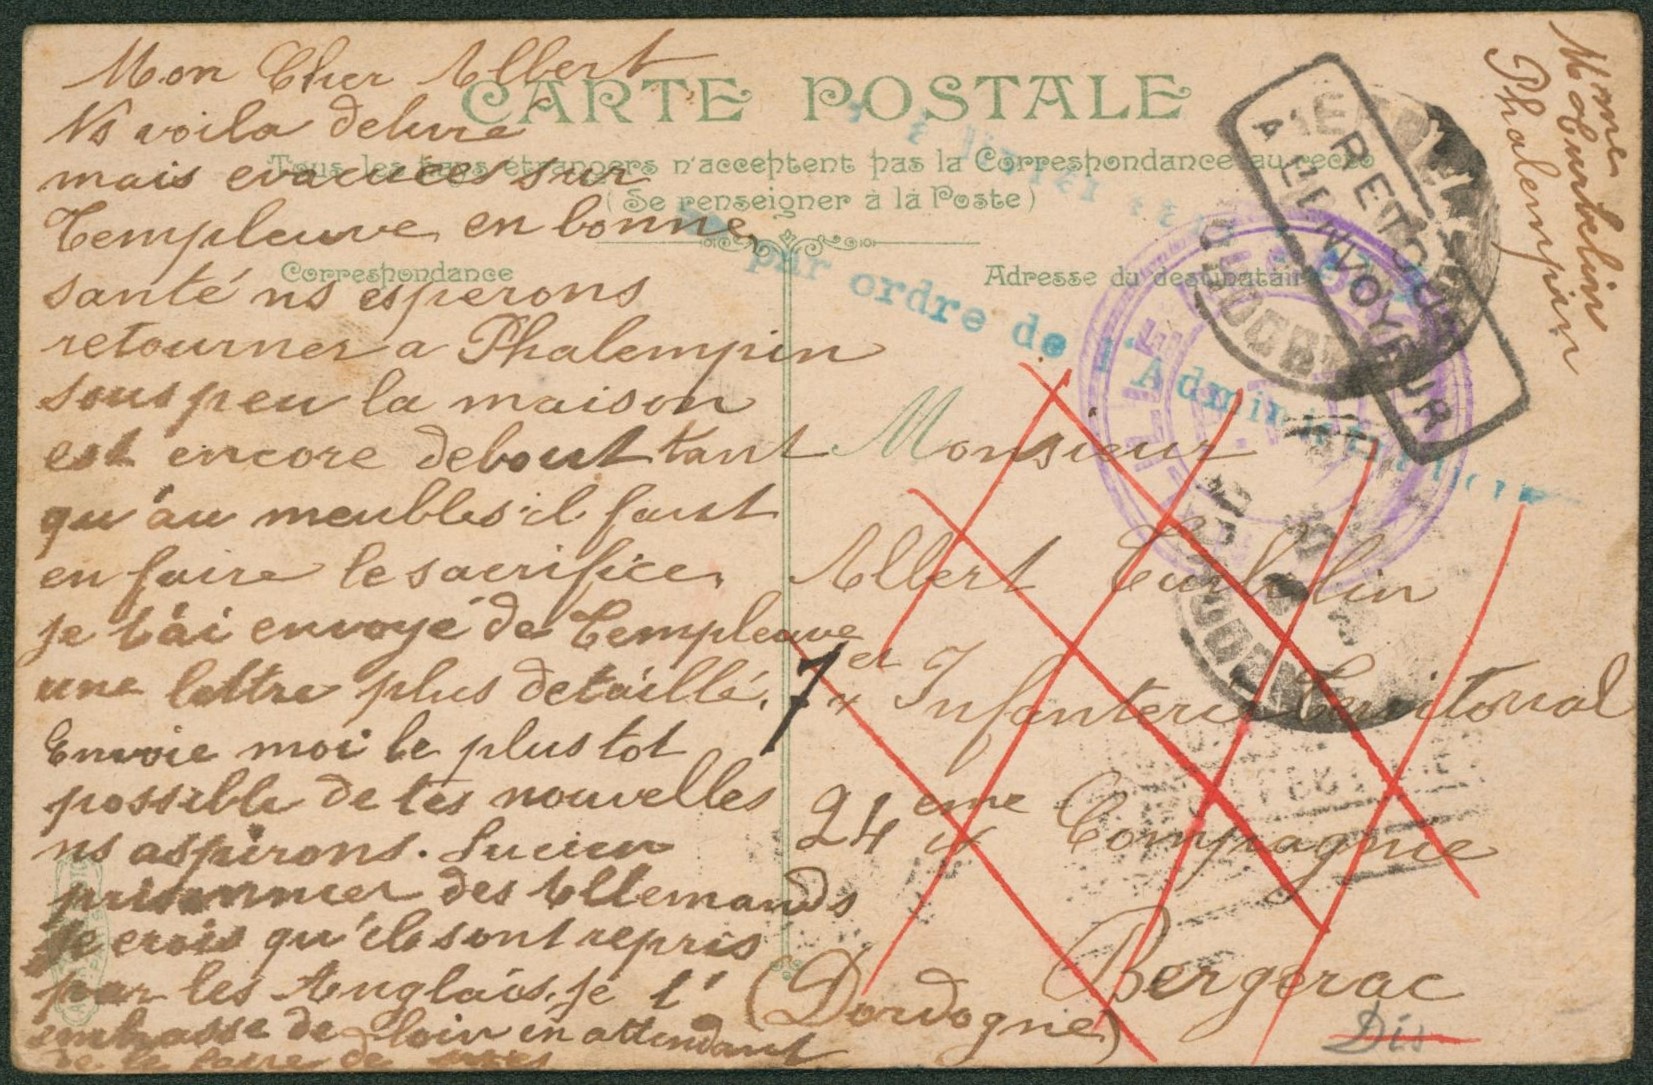 Mon Cher Albert
Ns voila delivre
mais evacuées sur
Templeuve en bonne
santé ns esperons
retourner a Phalempin
sous peu la maison
est encore debout tant
qu'au meubles il faut
en faire le sacrifice,
je t'ai envoyé de Templeuve
une lettre plus detaillé.
Envoie moi le plus tot
possible de tes nouvelles
ns aspirons. Lucien
prisonnier des Allemands
je crois qu'ils sont repris
par les Anglais. je t'
embrasse de loin en attendant
de le faire de
CARTE POSTALE
Tous les pays étrangers n'acceptent pas la Correspondance au recto
(Se renseigner à la Poste)
Correspondance
Adresse du destinataire
par ordre de l'Administration
RETOUR
A L'ENVOYEUR
Mme
Phalempin
Monsieur
Albert
7 Infanterie Territorial
24 eme Compagnie
Bergerac
(Dordogne)